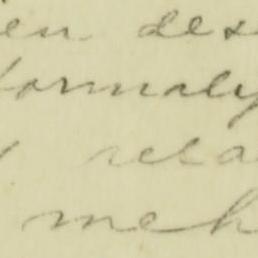 en des
formaly
rela
meh